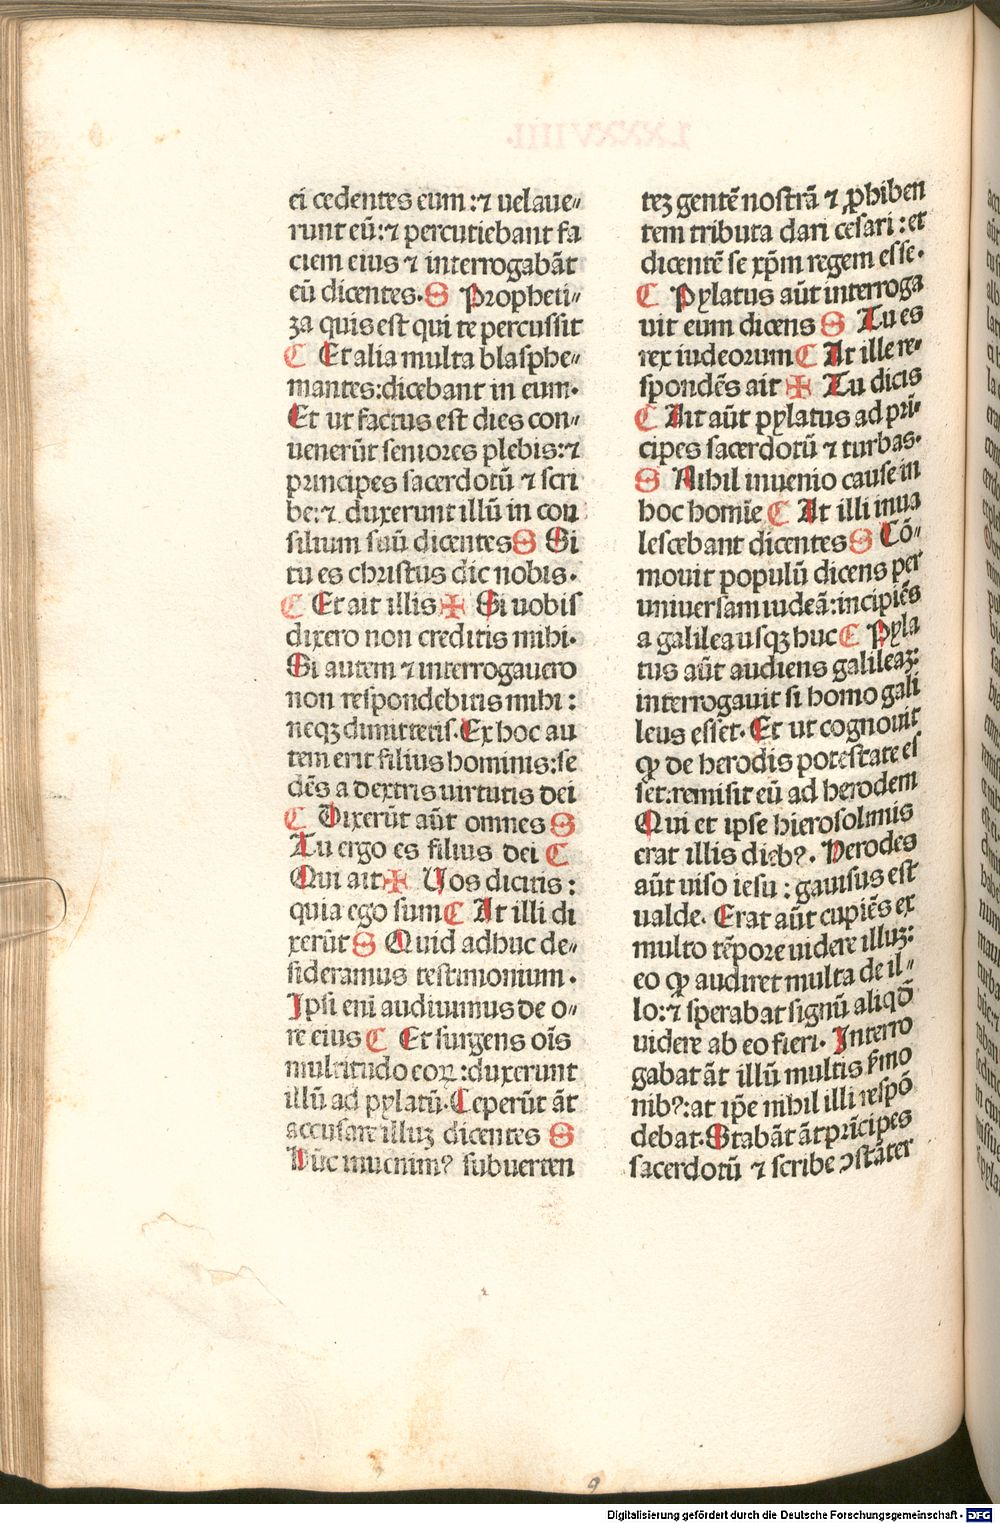 ei cedentes eum:⁊ uelaue〃
runt eū:⁊ percutiebant fa
ciem eius ⁊ interrogabāt
eū dicentes. S Propheti〃
za quis est qui te percussit
C Et alia multa blasphe〃
mantes:dicebant in eum.
Et ut factus est dies con〃
uenerūt seniores plebis:⁊
principes sacerdotū ⁊ scri
be:⁊ duxerunt illū in con
silium suū dicentes S Si
tu es christus dic nobis.
C Et ait illis ✠ Si uobis
dixero non creditis mihi.
Si autem ⁊ interrogauero
non respondebitis mihi:
neqꝫ dimittetis. Ex hoc au
tem erit filius hominis:se
dēs a dextris uirtutis dei
C Dixerūt aūt omnes S
Tu ergo es filius dei C
Qui ait ✠ Vos dicitis:
quia ego sum C At illi di
xerūt S Quid adhuc de〃
sideramus testimonium.
Ipsi eni audiuimus de o〃
re eius C Et surgens oīs
multitudo eoꝝ:duxerunt
illū ad pylatū. Ceperūt āt
accusare illuꝫ dicentes S
Hūc inuenim? subuerten
teꝫ gentē nostrā ⁊ ꝓhiben
tem tributa dari cesari:et
dicentē se xp̄m regem esse.
C Pylatus aūt interroga
uit eum dicens S Tu es
rex iudeorum C At ille re〃
spondēs ait ✠ Tu dicis
C Ait aūt pylatus ad pri〃
cipes sacerdotū ⁊ turbas.
S Nihil inuenio cause in
hoc homīe C At illi inua
lescebant dicentes S Cō〃
mouit populū dicens per
uniuersam iudeā:incipiēs
a galilea usqꝫ huc C Pyla
tus aūt audiens galileaꝫ:
interrogauit si homo gali
leus esset. Et ut cognouit
ꝙ de herodis potestate es
set:remisit eū ad herodem
Qui et ipse hierosolmis
erat illis dieb?. Herodes
aūt uiso iesu:gauisus est
ualde. Erat aūt cupiēs ex
multo tēpore uidere illuꝫ:
eo ꝙ audiret multa de il〃
lo:⁊ sperabat signū aliqđ
uidere ab eo fieri. Interro
gabat āt illū multis ẜmo
nib?:at ip̄e nihil illi respō
debat. Stabāt āt prīcipes
sacerdotū ⁊ scribe ↄstāter
Digitalisierung gefördert durch die Deutsche Forschungsgemeinschaft - DFG